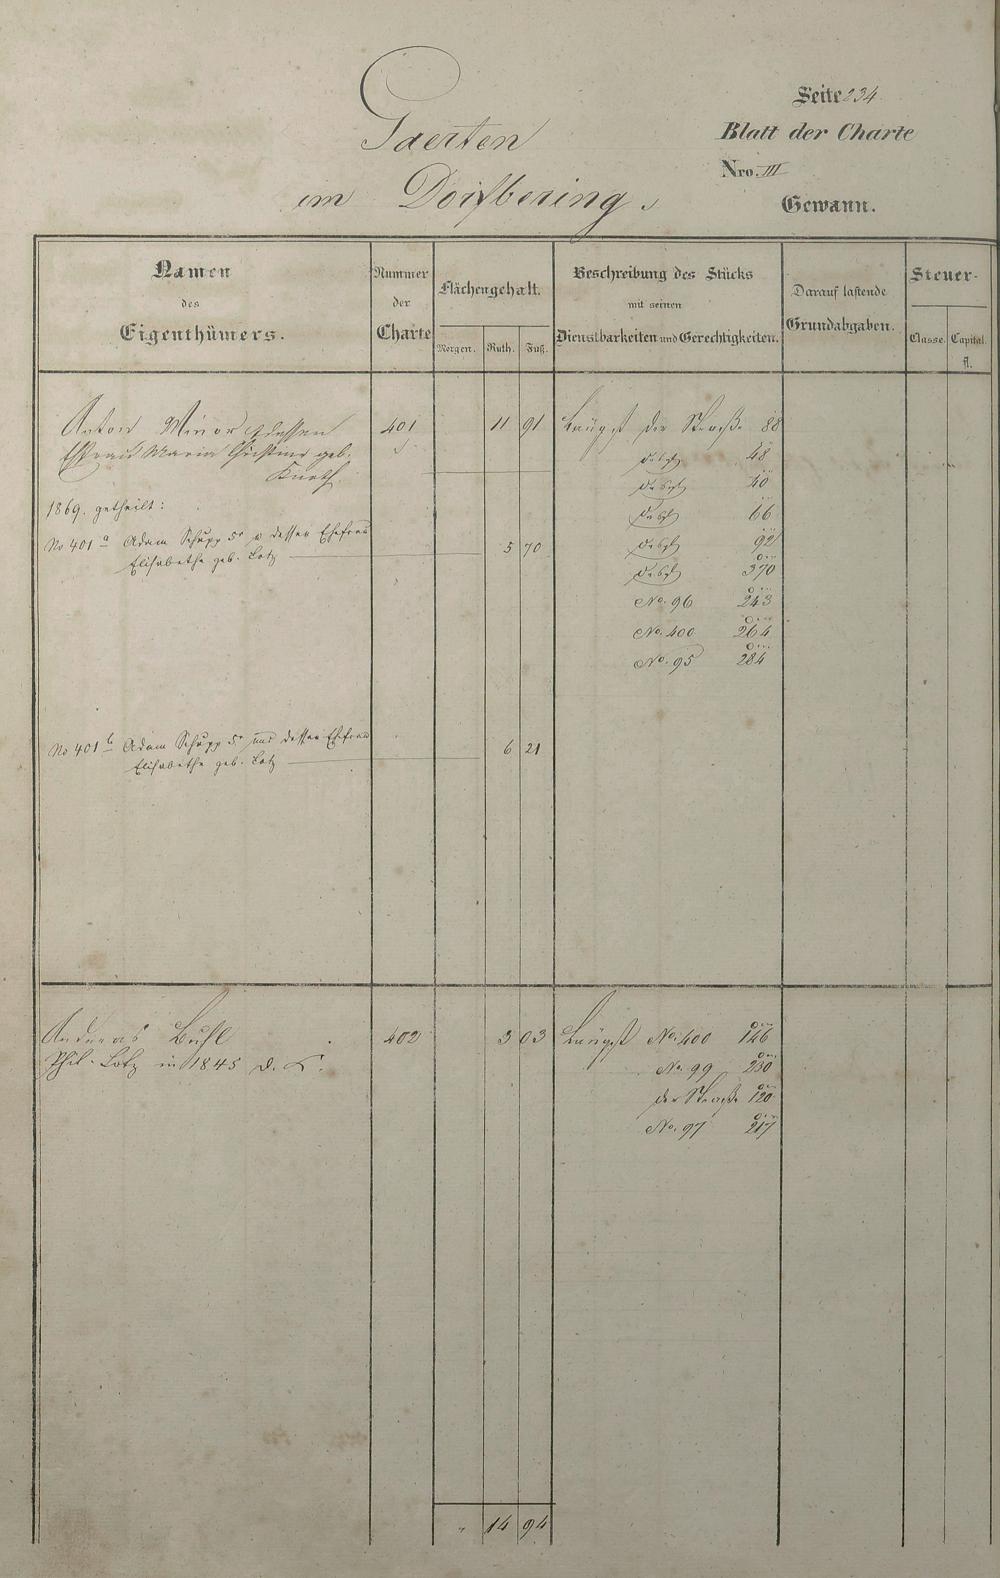 Seite 234
Gaerten
Blatt der Charte
Nro. III
im Dorfbering.
Gewann.
Namen
des
Eigenthümers.
Nummer
der
Charte
Flächengehalt.
Morgen. Ruth. Fuß.
Beschreibung des Stücks
mit seinen
Dienstbarkeiten und Gerechtigkeiten.
Darauf lastende
Grundabgaben.
Steuer-
Classe. Capital.
fl.
Anton Minor dessen 401 11 91 Längst der Straße 88
Ehfrau Maria Christine geb. 48
40
1869. getheilt: 66
No 401 a Adam Schupp 5r u dessen Ehefrau 5 70 92
Elisabethe geb. Lotz 370
No. 96 243
No. 400 264
No. 95 284
No 401 b Adam Schupp 5r und dessen Ehefrau 6 21
Elisabethe geb. Lotz
Andreas Buhl 402 3 03 Längst No. 400 146
Phil. Lotz in 1845 d. L. No. 99 230
der Straße 120
No. 97 217
14 94